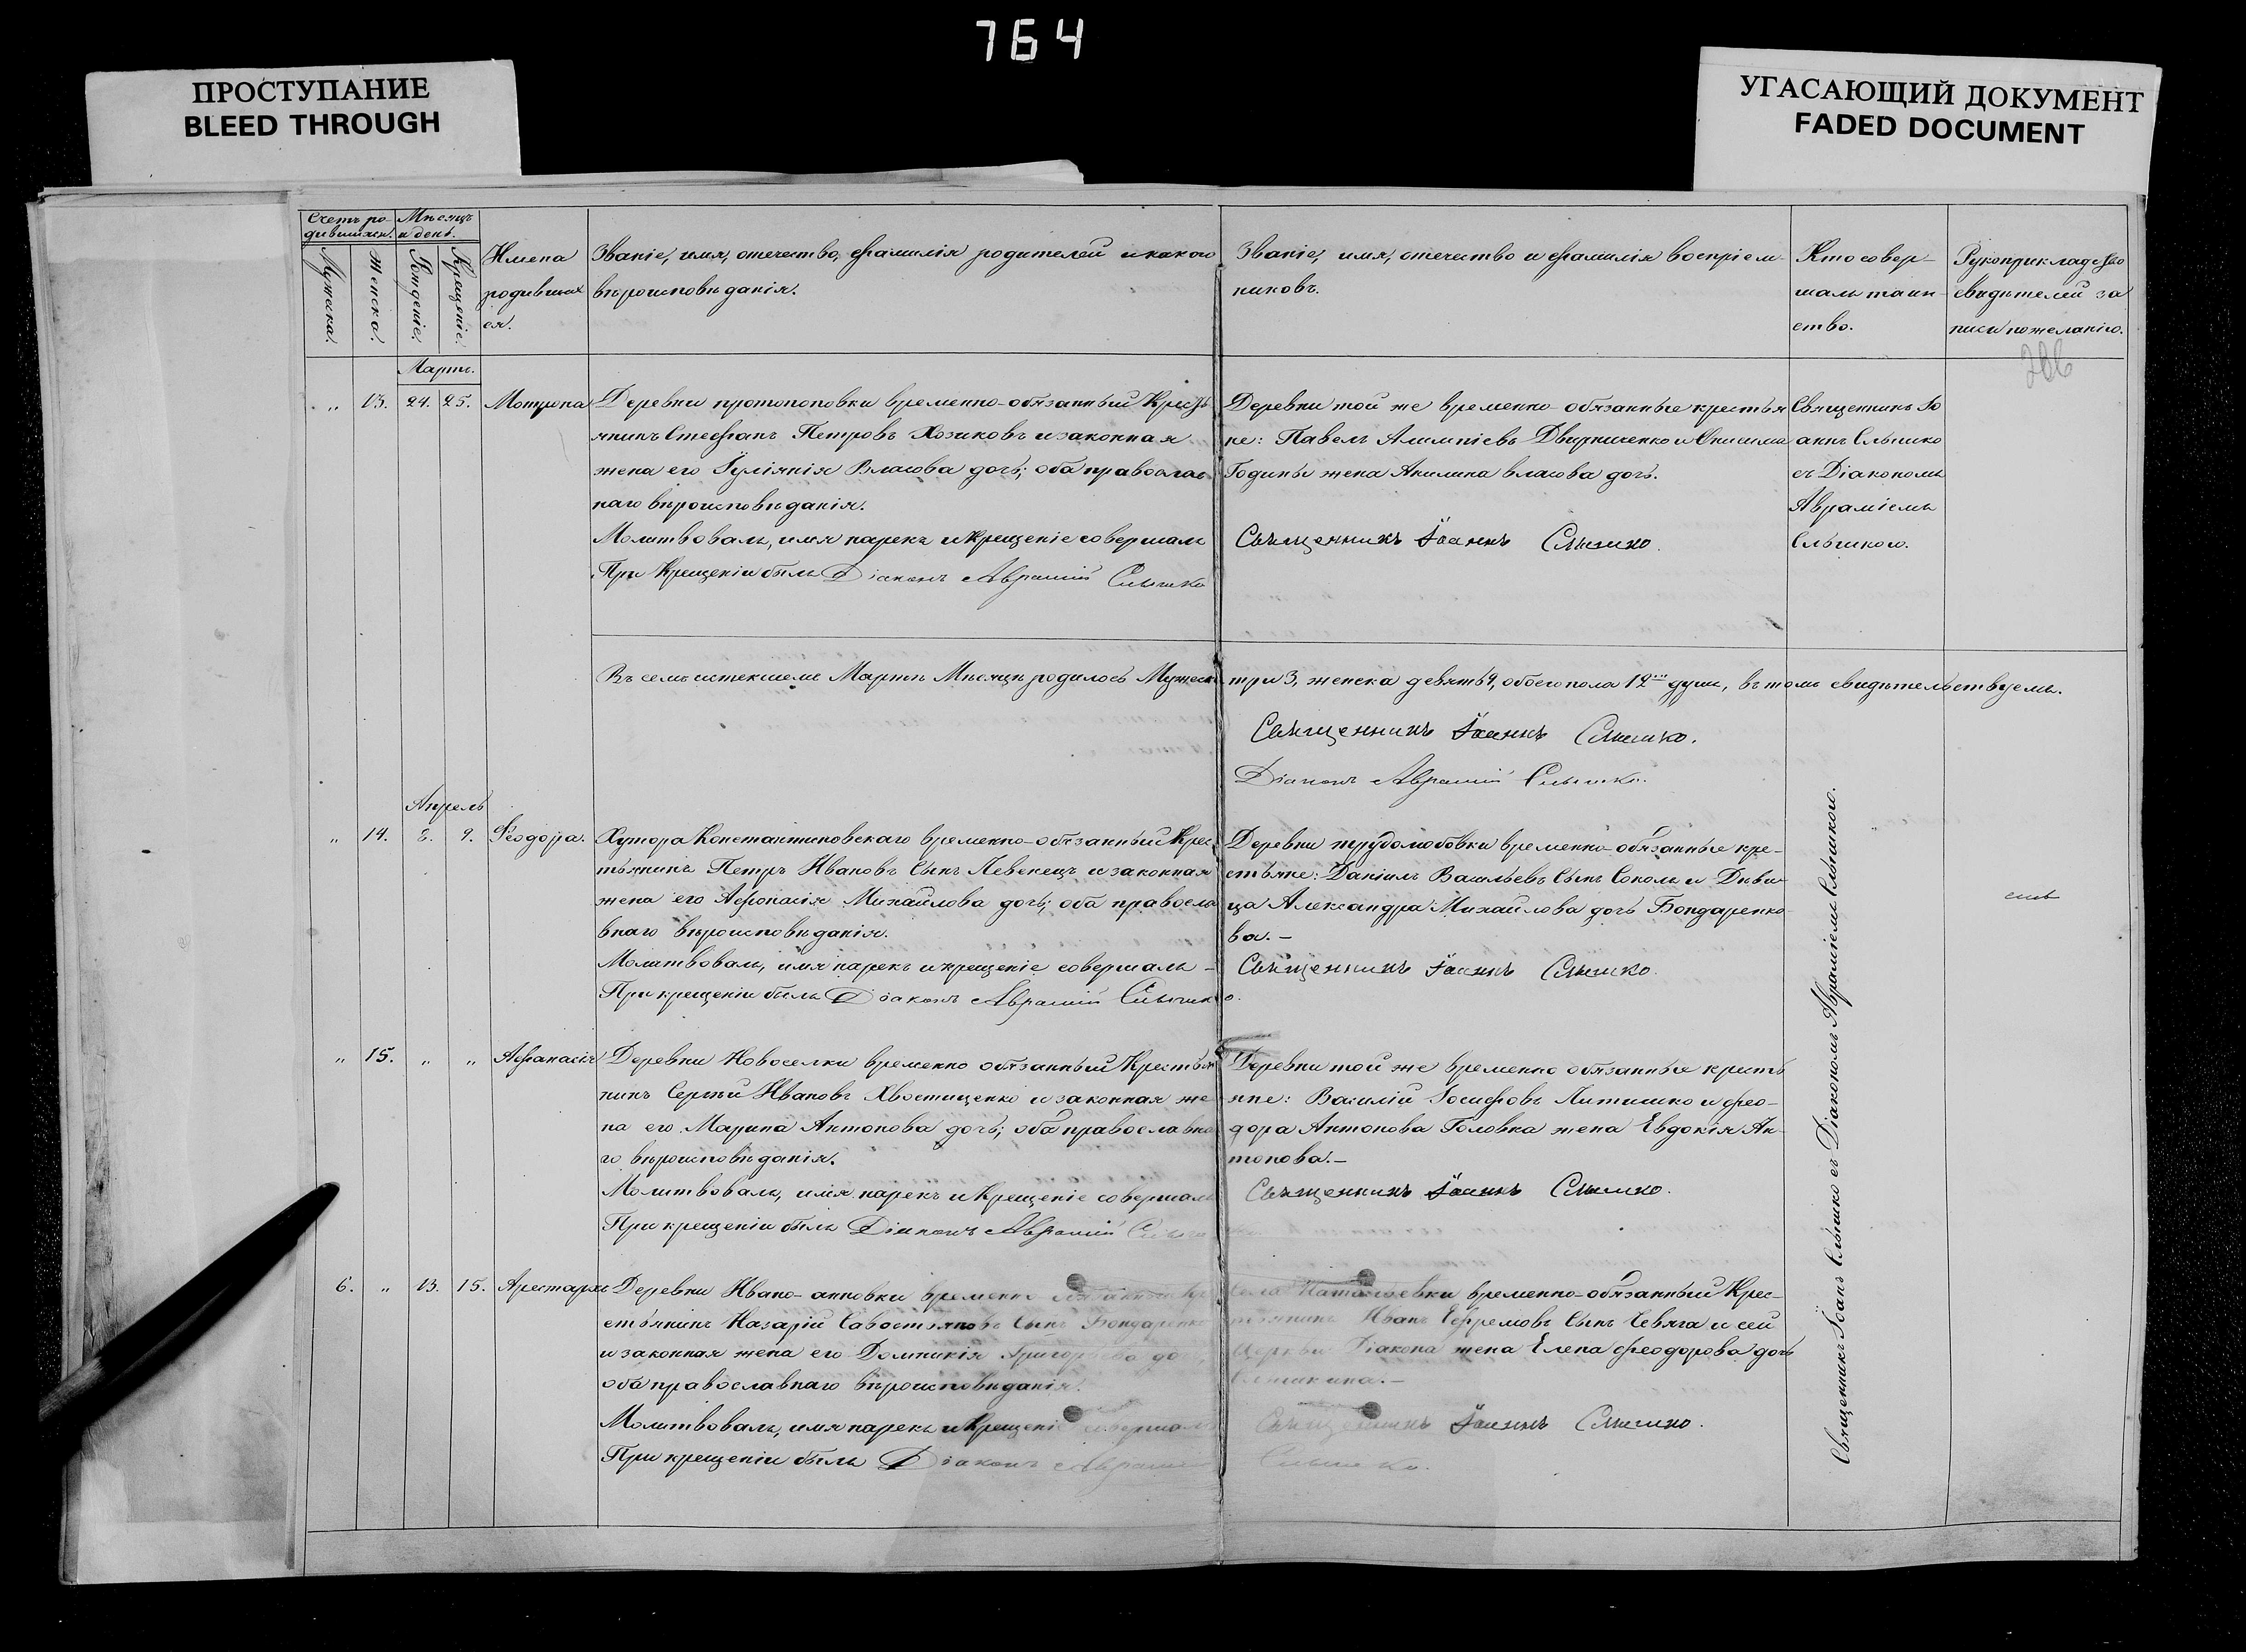 764
ПРОСТУПАНИЕ
BLEED THROUGH
УГАСАЮЩИЙ ДОКУМЕНТ
FADED DOCUMENT
Счетъ ро-
дившихся.
Мѣсяцъ
и день.
Мужска.
Женска.
Рожденіе.
Крещеніе.
Имена
родивших
ся.
Званіе, имя, отечество, фамилія родителей и какого
вѣроисповѣданія.
Званіе, имя, отечество и фамилія воспріем-
никовъ.
Кто совер-
шалъ таин-
ство.
Рукоприкладство
свидѣтелей за
писи по желанію.
206
Мартъ.
„ 13. 24. 25. Мотрона
Деревни протопоповки временно-обязанный Кресть
янинъ Стефанъ Петровъ Хозиковъ и законная
жена его Іуліянія Власова дочь; оба православ
наго вѣроисповѣданія.
Молитвовалъ, имя нарекъ и Крещеніе совершалъ
При Крещеніи былъ Діаконъ Аврамій Слышко
Деревни той же временно-обязанные крестья
не: Павелъ Алимпіевъ Двирниченко и Онисима
Годины жена Акилина власова дочь.
Священникъ Іоаннъ Слышко.
Священникъ Іо
аннъ Слышко
съ Діакономъ
Авраміемъ
Слышкою.
Въ семъ истекшемъ Мартѣ Мѣсяцѣ родилось Мужеска три 3, женска девять 9, обоего пола 12 душъ, въ томъ свидѣтельствуемъ.
Священникъ Іоаннъ Слышко.
Діаконъ Аврамій Слышко.
Апрель
„ 14. 8. 9. Феодора.
Хутора Константиновскаго временно-обязанный Крес
тьянинъ Петръ Ивановъ Сынъ Левенецъ и законная
жена его Афонасія Михайлова дочь; оба правосла
внаго вѣроисповѣданія.
Молитвовалъ, имя нарекъ и крещеніе совершалъ -
При крещеніи былъ Діаконъ Аврамій Слышко.
Деревни трудолюбовки временно-обязанные кре-
стьяне: Даніилъ Васильевъ Сынъ Соколъ и Дѣви-
ца Александра Михайлова дочь Бондаренко-
ва. -
Священникъ Іоаннъ Слышко.
„ 15. „ „ Афанасія
Деревни Новоселки временно обязанный Крестья
нинъ Сергѣй Ивановъ Хвостищенко и законная же
на его Марина Антонова дочь; оба православна
го вѣроисповѣданія.
Молитвовалъ, имя нарекъ и Крещеніе совершалъ
При крещеніи былъ Діаконъ Аврамій
Деревни той же временно обязанные кресть
яне: Василій Іосифовъ Литишко и фео-
дора Антонова Головка жена Евдокія Ан-
тонова. -
Священникъ Іоаннъ Слышко.
6. „ 13. 15. Арестархъ
Деревни Ивано-анновки временно обязанный Кре
стьянинъ Назарій Савостьяновъ Сынъ Бондаренко
и законная жена его Домникія Григорьева дочь,
оба православнаго вѣроисповѣданія.
Молитвовалъ, имя нарекъ и Крещеніе совершалъ
При крещеніи былъ Діаконъ Аврамій Слышко.
Села Натальевки временно-обязанный Крес-
тьянинъ Иванъ Ефремовъ Сынъ Севяга и сей
Церкви Діакона жена Елена феодорова дочь
Слышкина. -
Священникъ Іоаннъ Слышко.
Священникъ Іоаннъ Слышко съ Діакономъ Авраміемъ Слышкою.